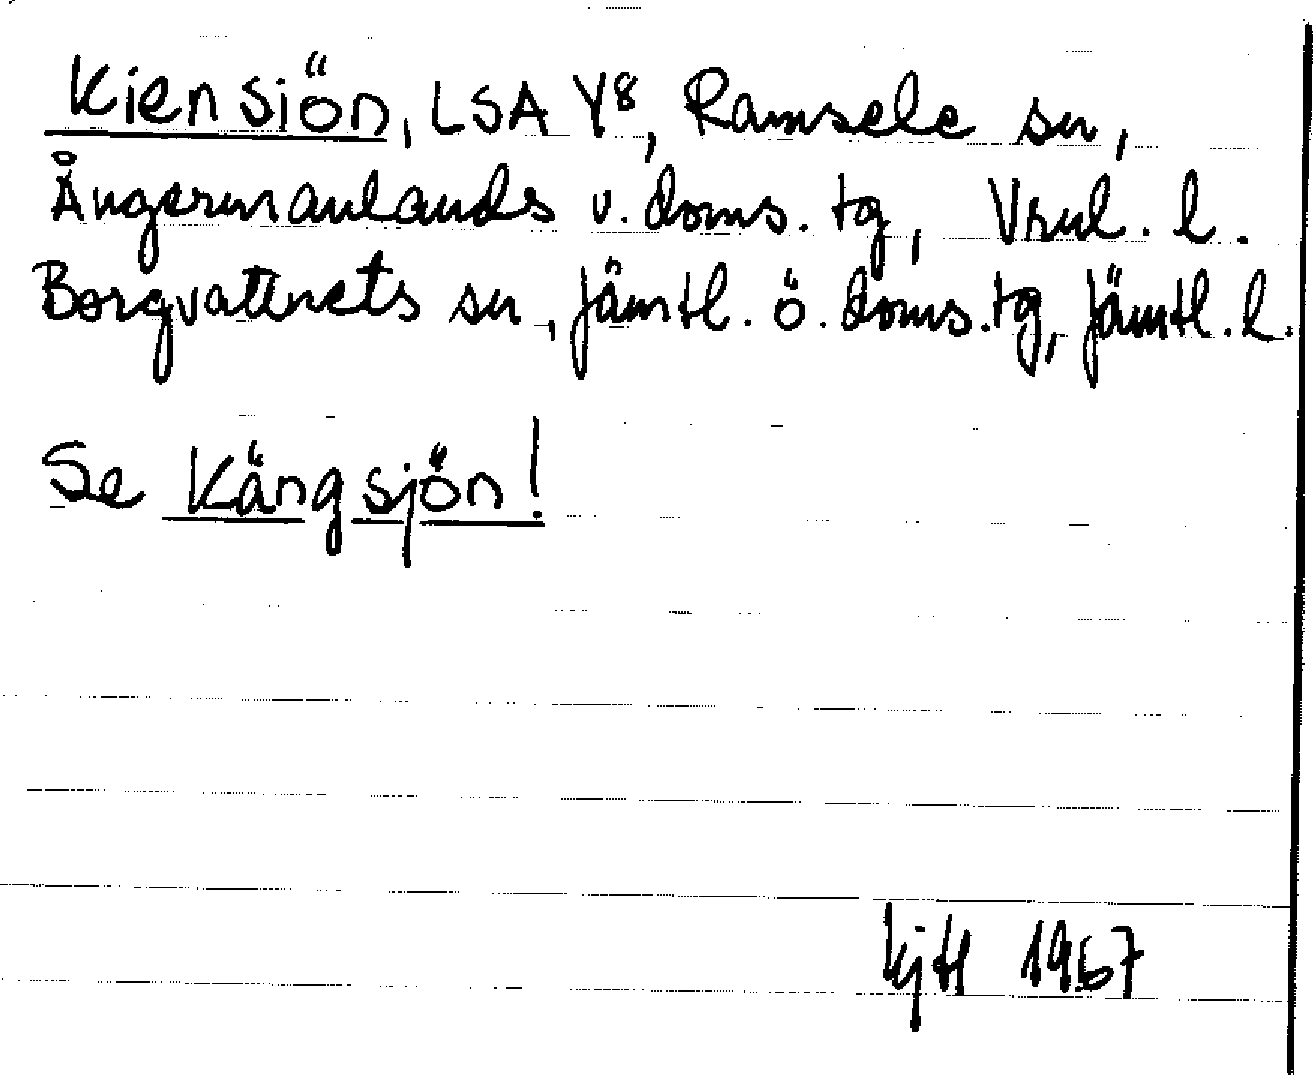 Kiensiön, LSA Y8, Ramsele sn,
Ångermanlands v. doms. tg, Vrnl. l.
Borgvattnets sn, Jämtl. ö. doms. tg, Jämtl. l.
Se Kängsjön!
1967